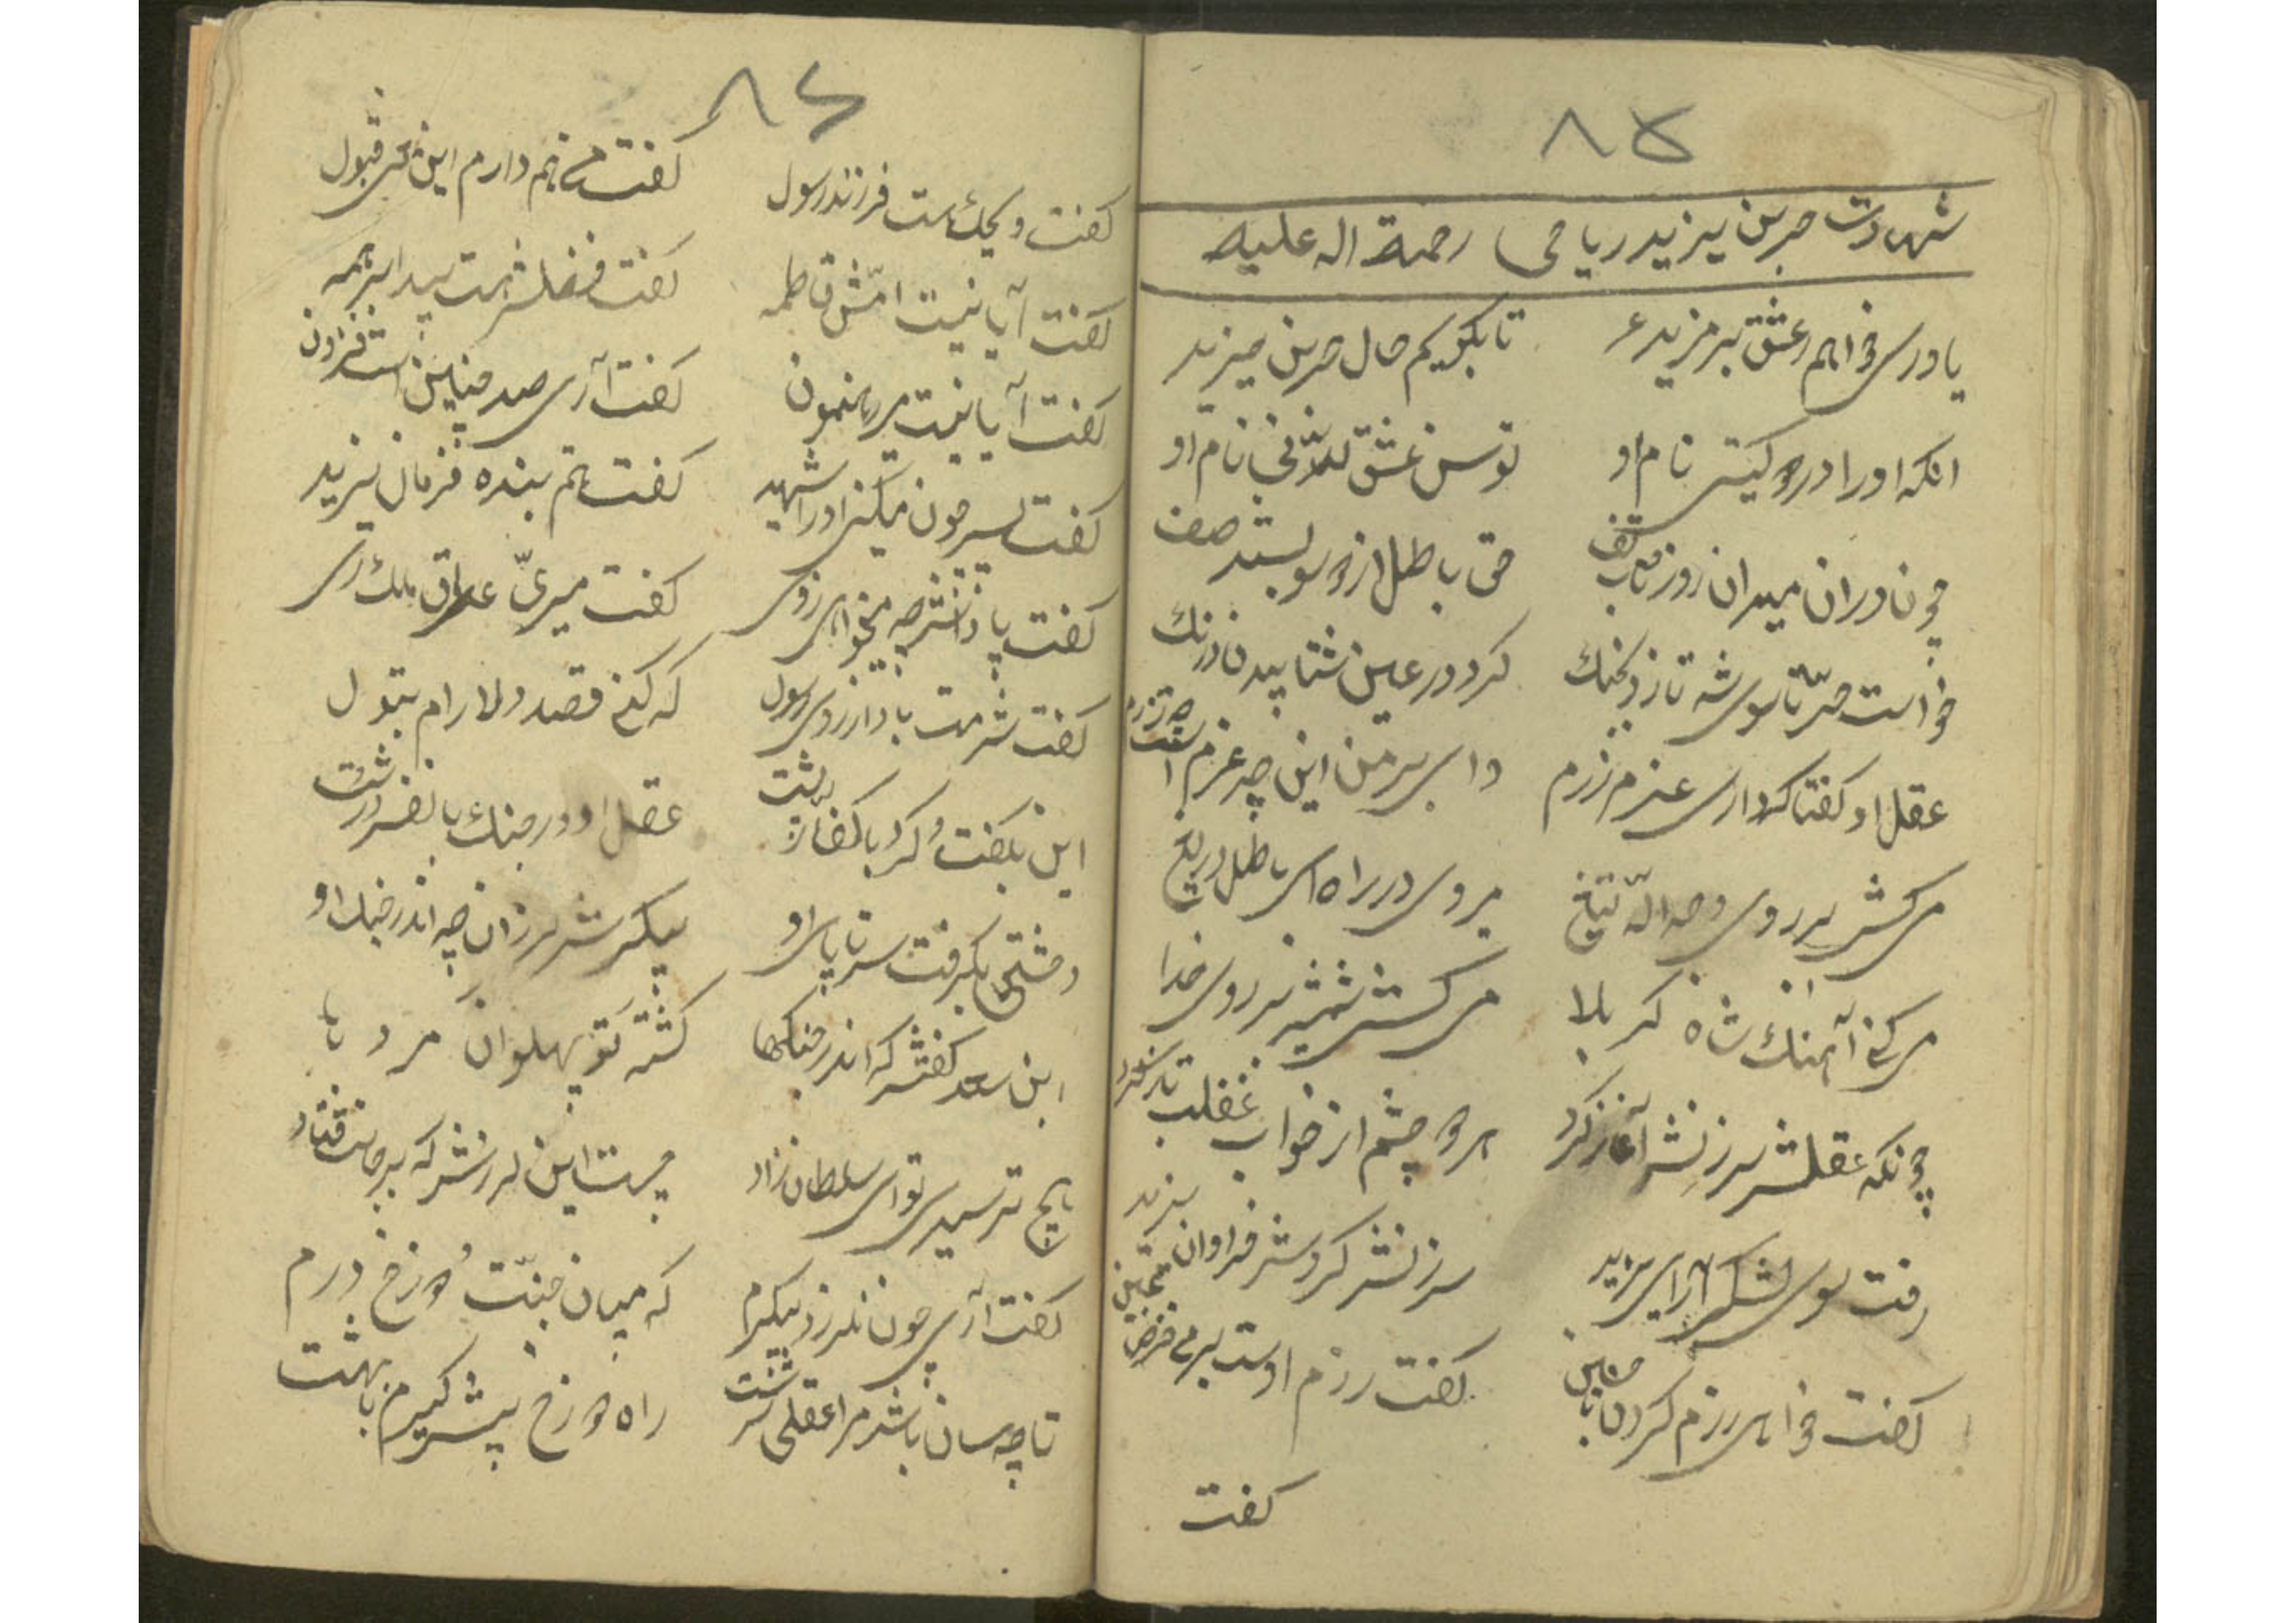 ۸۵
شهادت حر بن یزید ریاحی رحمة اله علیه
یاوری خواهم ز عشق بر مزید تا بگویم حال حر بن یزید
انکه او را در دو کیتی نام او توسن عشق نام او
چون دران میدان روز حق باطل از دو سو بستند صف
خواست حرّ تا سوی شه تازد بجنک کرد در عین شتابیدن درنک
عقل او کفتا که داری عزم رزم وای بر من این چه عزم است
می کشی بر روی وجه الله تیغ میروی در راه باطل ای دریغ
می کنی آهنک شاه کربلا می کشی شمشیر بر روی خدا
چونکه عقلش سرزنش آغاز کرد هر دو چشم از خواب غفلت باز کرد
رفت سوی لشکر آرای یزید سرزنش کردش فراوان
کفت خواهی رزم کردن با حسین کفت رزم اوست بر من فرض
کفت
۸۶
کفت ویحک هست فرزند رسول کفت من هم دارم این قبول
کفت آیا نیست امّش فاطمه کفت فضلش هست پیدا بر همه
کفت آیا نیست بر رهنمون کفت آری صد چنین است فزون
کفت پس چون میکنی او را شهید کفت هستم بنده فرمان یزید
کفت پاداشش چه میخواهی ز وی کفت میریّ عراق ملک ری
کفت شرمت باد از روی رسول که کنی قصد دلارام بتول
این بکفت و کرد با کفار پشت عقل او در جنک با نفس درشت
وحشتی بکرفت سر تا پای او پیکرش لرزان چه اندر جنک او
ابن سعد کفتش که اندر جنکها کشته تو پهلوان مرد با
هیچ ترسیدی تو ای سلطان نژاد چیست این لرزش که بر جانت فتاد
کفت آری چون نلرزد پیکرم که میان جنّت و دوزخ درم
تا چه سان باشد مرا عقلی سرشت راه دوزخ پیش کیرم یا بهشت